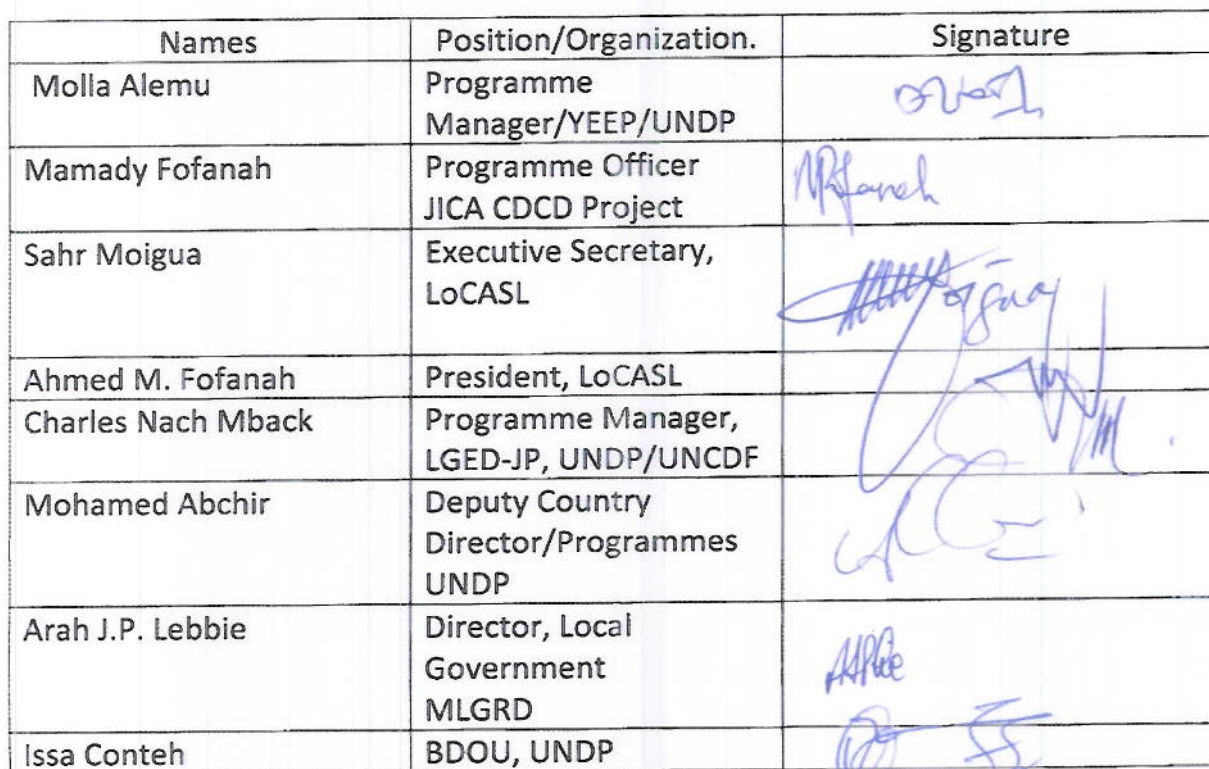 Names Position/Organization. Signature
Molla Alemu Programme
Manager/YEEP/UNDP
Mamady Fofanah Programme Officer
JICA CDCD Project
Sahr Moigua Executive Secretary,
LoCASL
Ahmed M. Fofanah President, LoCASL
Charles Nach Mback Programme Manager,
LGED-JP, UNDP/UNCDF
Mohamed Abchir Deputy Country
Director/Programmes
UNDP
Arah J.P. Lebbie Director, Local
Government
MLGRD
Issa Conteh BDOU, UNDP